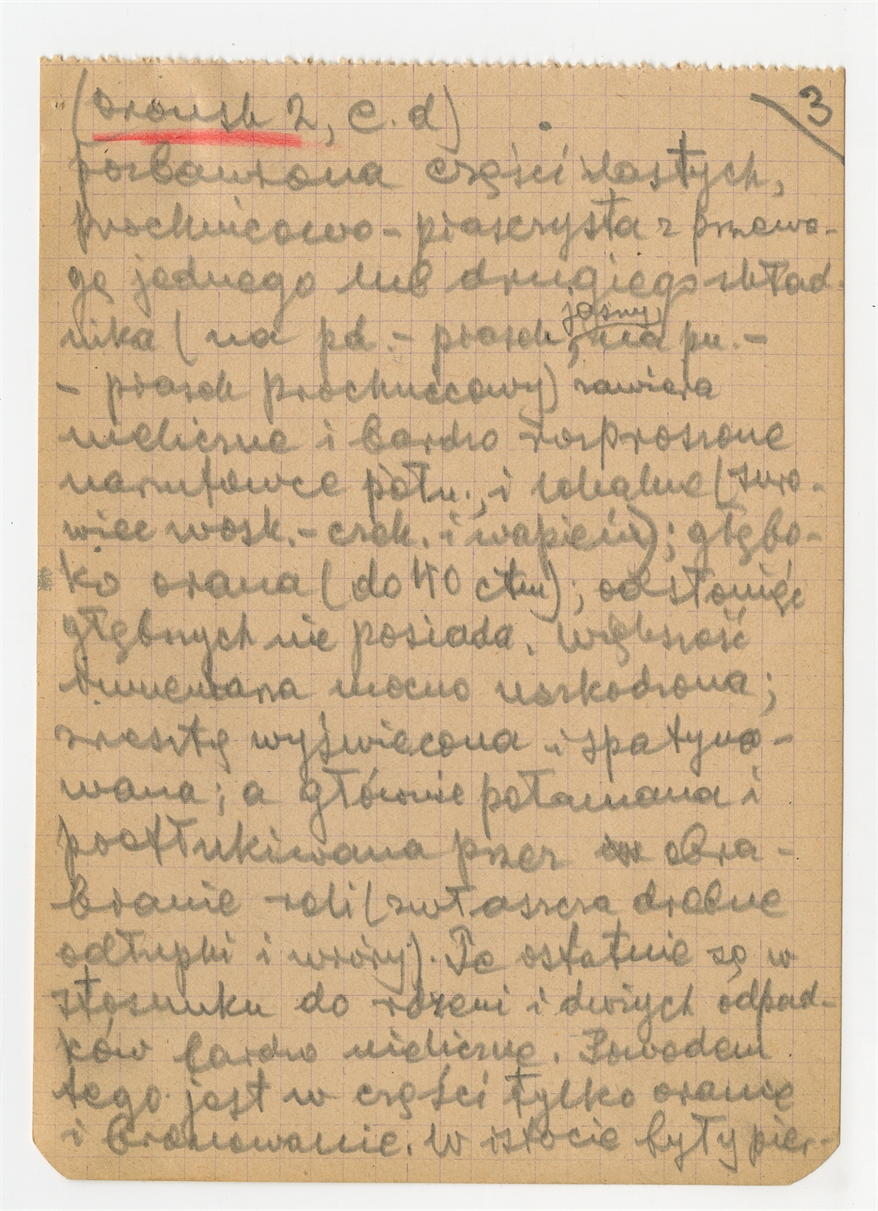 (Orońsk 2, c.d) 3
pozbawiona części ilastych,
próchnicowo-piaszczysta z przewa-
gą jednego lub drugiego skład-
nika (na pd. - piasek jasny, na pn. -
- piasek próchnicowy) zawiera
nieliczne i bardzo rozproszone
narzutowce półn., i lokalne (suro-
wiec wosk.-czek. i wapień); głębo-
ko orana (do 40 ctm); odsłonięć
głębszych nie posiada. Większość
krzemieni mocno uszkodzona;
zresztą wyświecona i spatyno-
wana; a głównie połamana i
potłukiwana przez obra-
bianie roli (zwłaszcza drobne
odłupki i wióry). Te ostatnie są w
stosunku do rdzeni i dużych odpad-
ków bardzo nieliczne. Powodem
tego jest w części tylko oranie
i bronowanie. W istocie były pier-